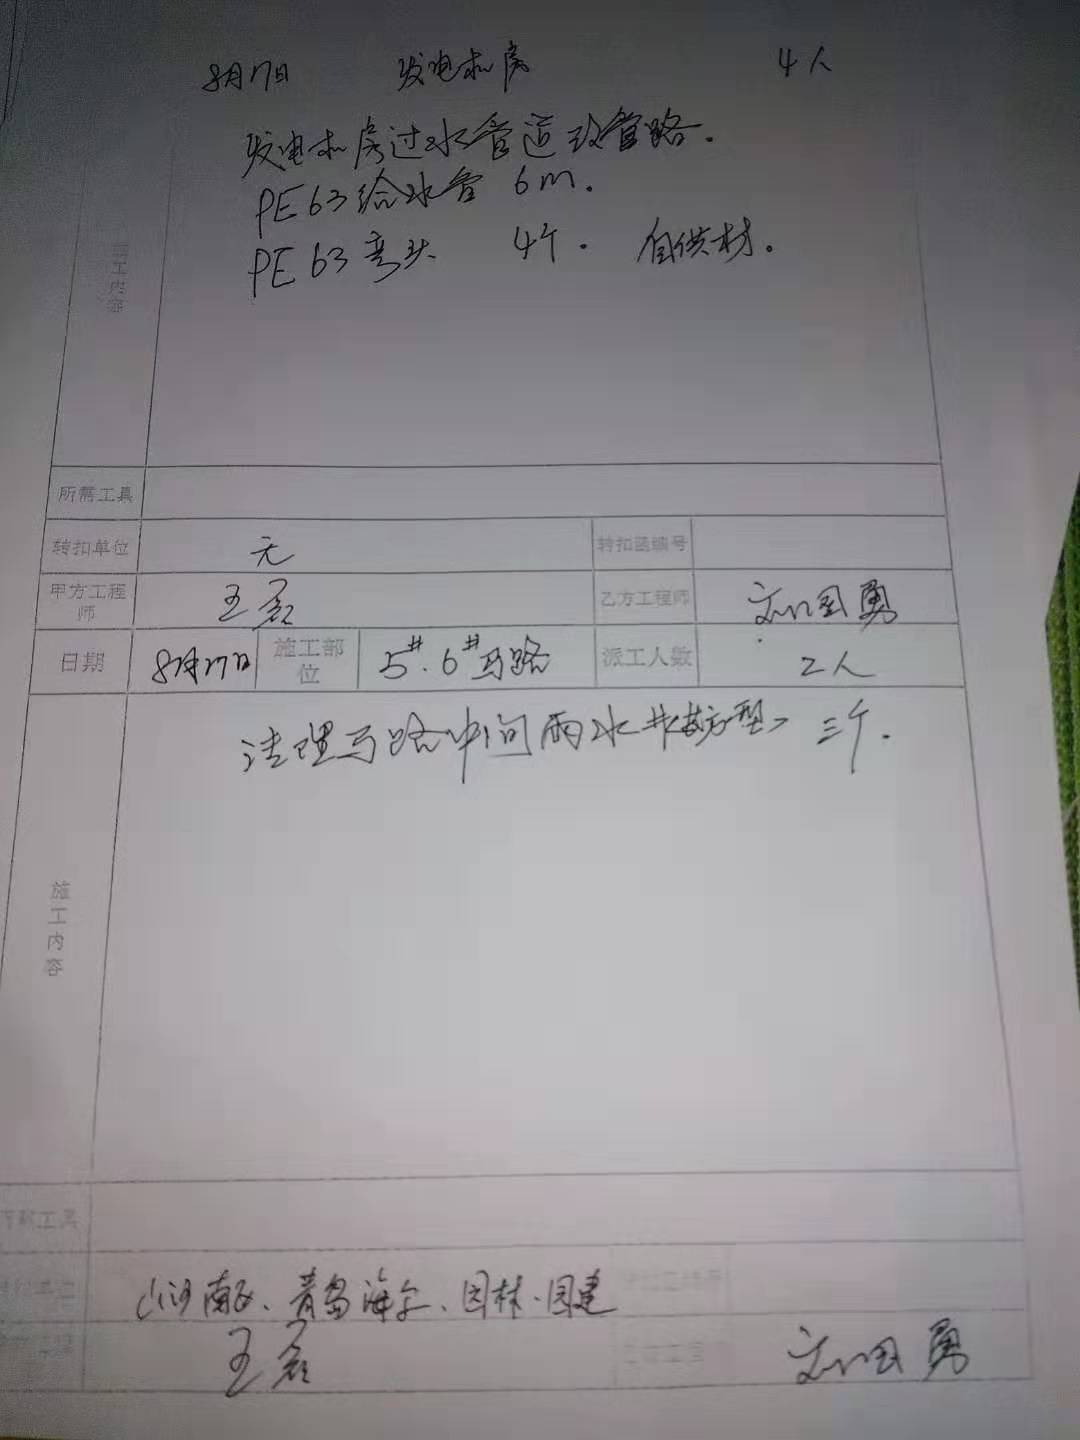 8月17日 发电机房 4人
发电机房过水管道改管路.
PE63给水管 6m.
PE63弯头 4个. 自供材.
施工内容
所需工具
转扣单位 无 转扣函编号
甲方工程师 王磊 乙方工程师 刘国勇
日期 8月27日 施工部位 5#.6#马路 派工人数 2人
清理马路中间雨水井 三个.
施工内容
所需工具
转扣单位 青岛海尔、园林、园建
王磊 刘国勇